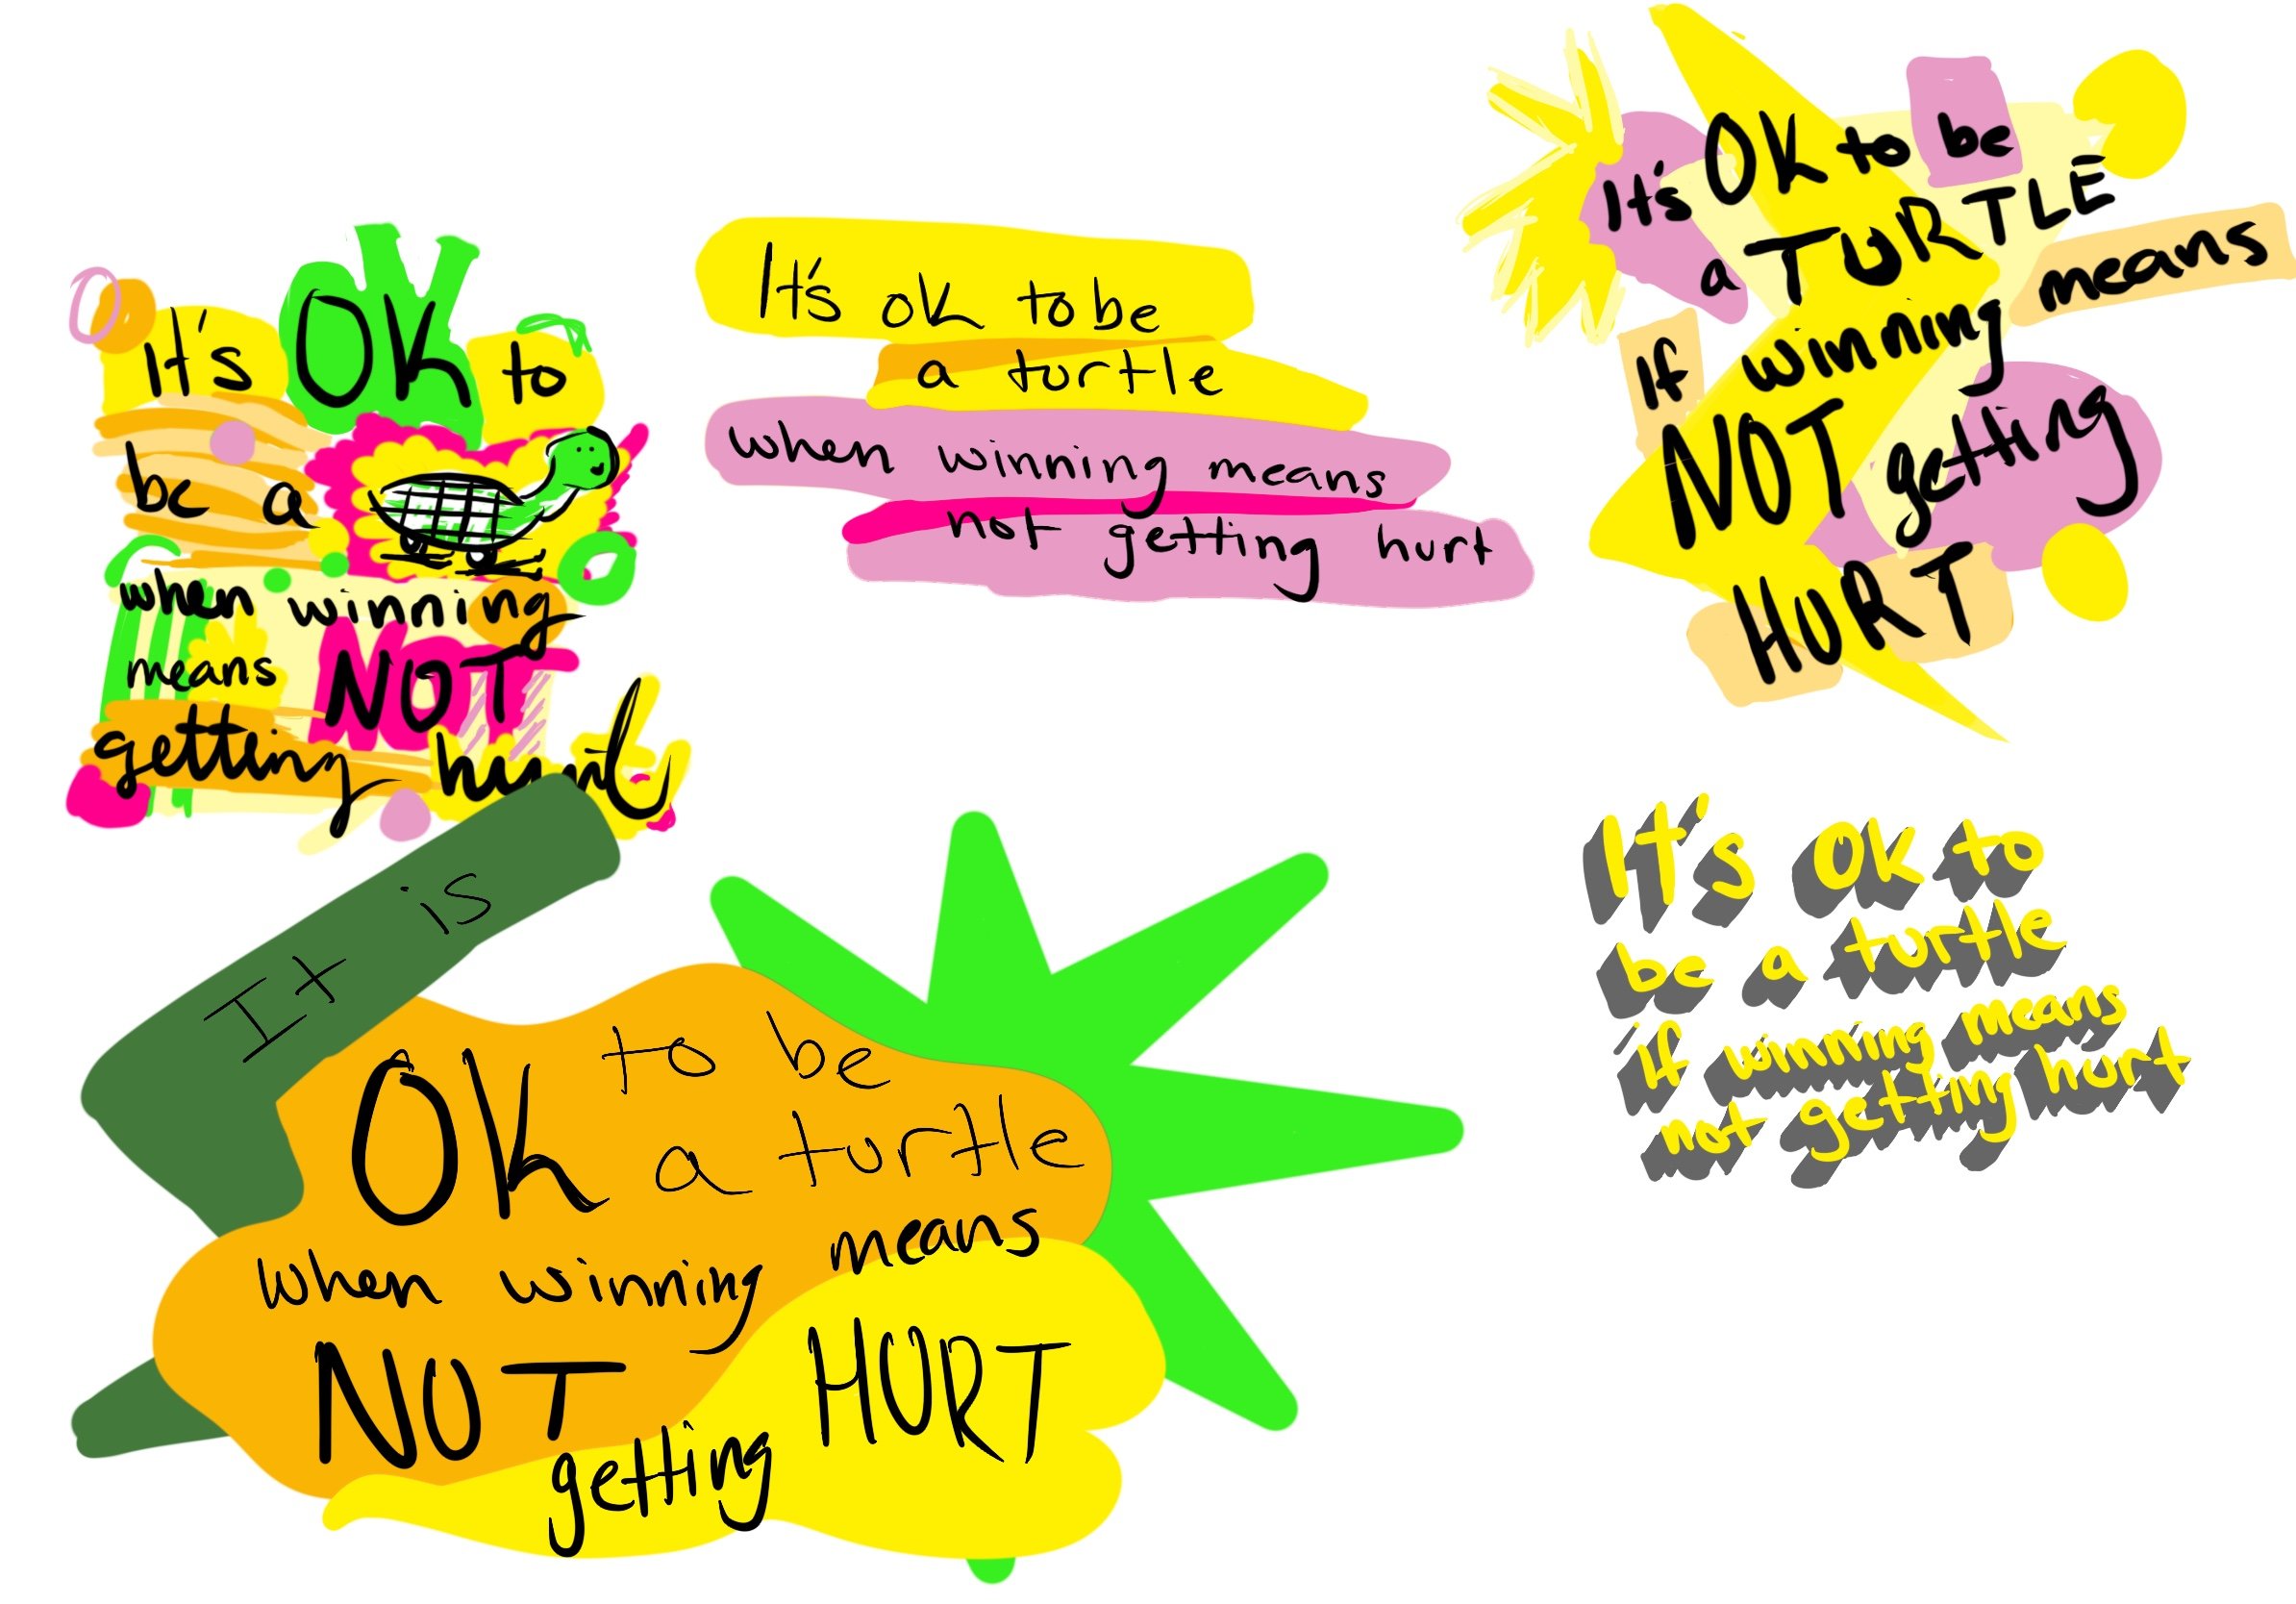 It's OK to
be a
when winning
means NOT
getting hurt
It's ok to be
a turtle
when winning means
not getting hurt
It's OK to be
a TURTLE
If winning means
NOT getting
HURT
It is
OK to be
a turtle
when winning means
NOT
getting HURT
It's OK to
be a turtle
if winning means
not getting hurt